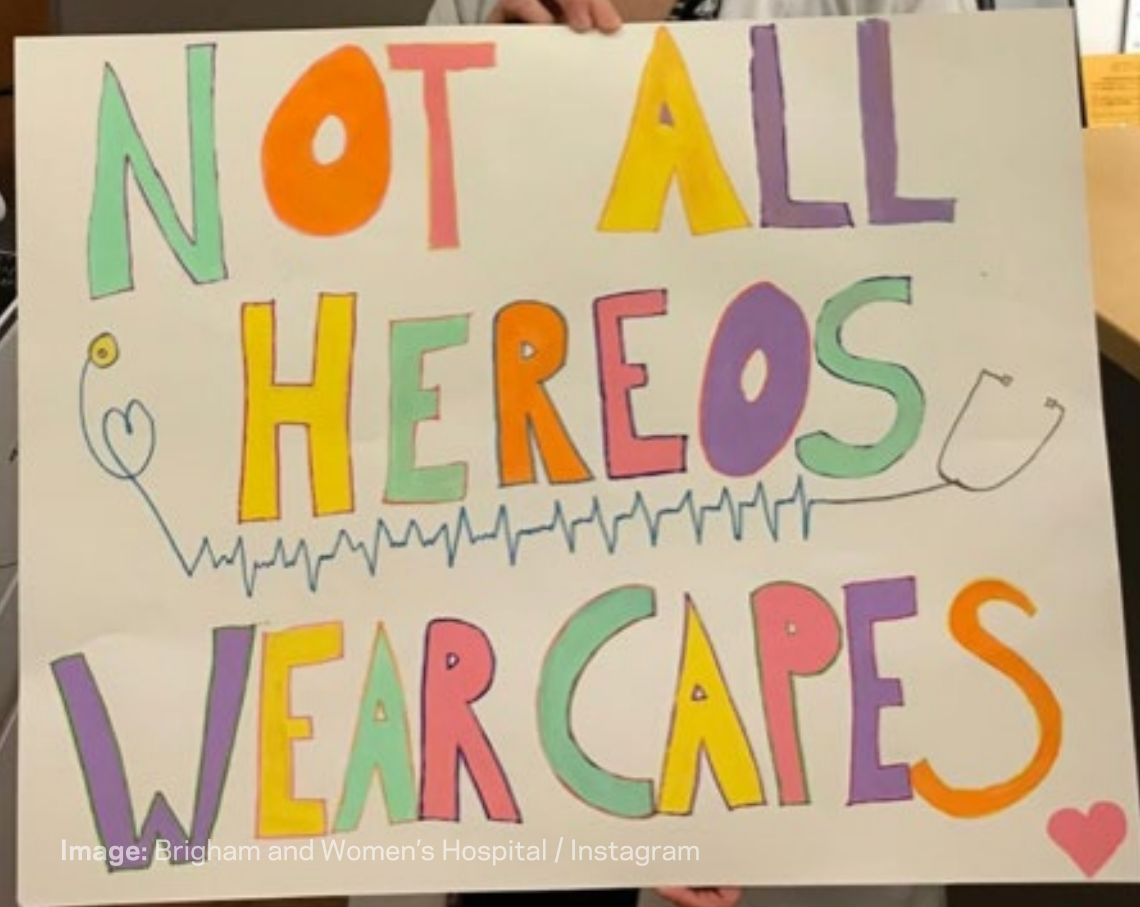 NOT ALL
HEREOS
WEAR CAPES
Image: Brigham and Women's Hospital / Instagram